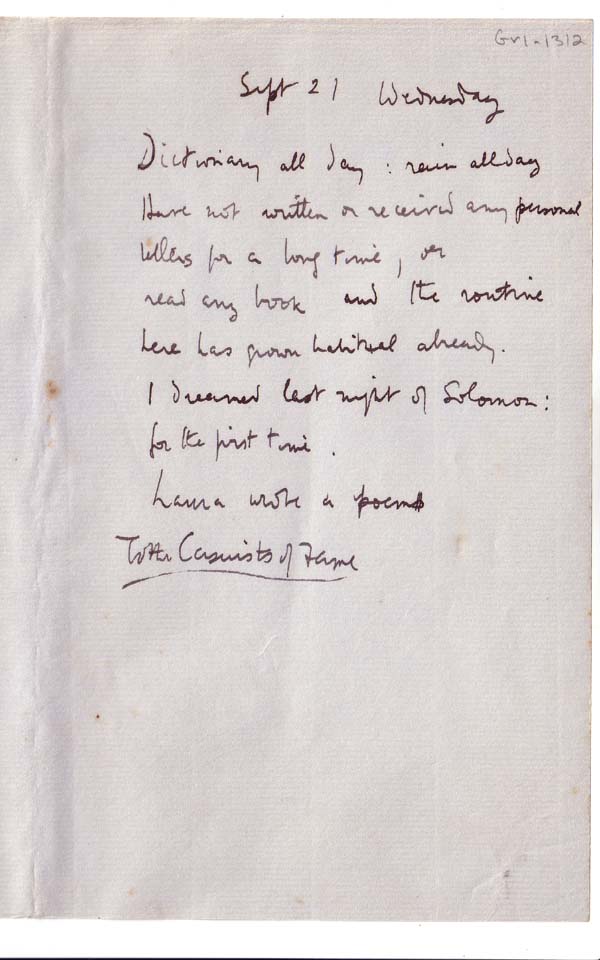 Gr1-1312
Sept 21 Wednesday
Dictionary all day : rain all day
Have not written or received any personal
letters for a long time, or
read any book and the routine
here has grown habitual already.
I dreamed last night of Solomon:
for the first time.
Laura wrote a poem
To the Casuists of Fame